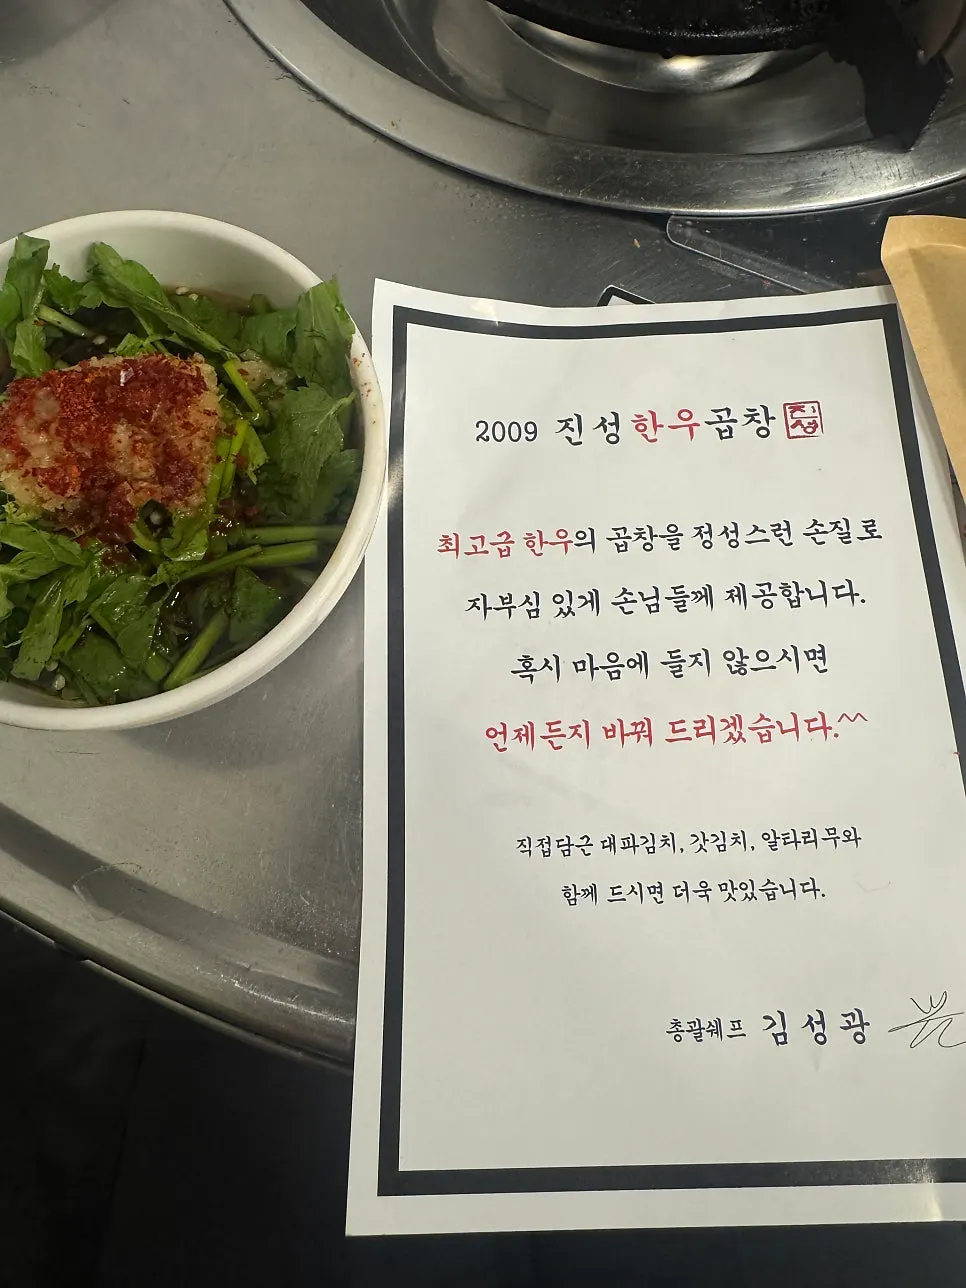 2009 진성한우곱창 진성
최고급 한우의 곱창을 정성스런 손질로
자부심 있게 손님들께 제공합니다.
혹시 마음에 들지 않으시면
언제든지 바꿔 드리겠습니다.^^
직접담근 대파김치, 갓김치, 알타리무와
함께 드시면 더욱 맛있습니다.
총괄쉐프 김성광